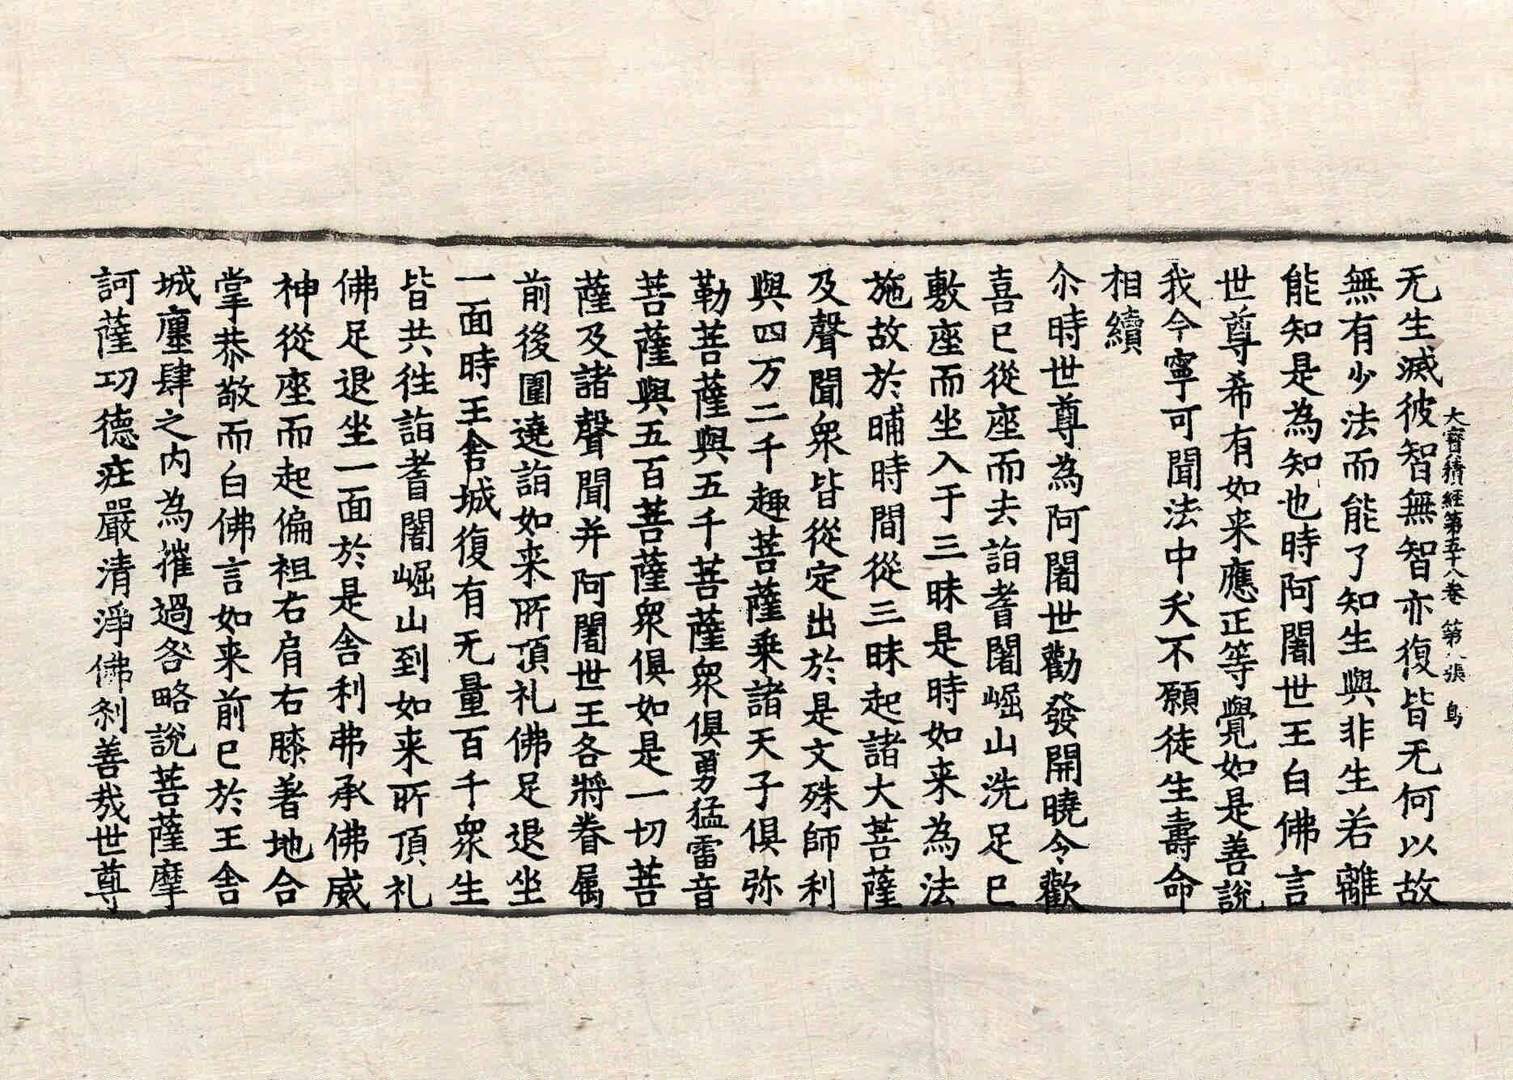 大寶積經第五十八卷 第八張 鳥
无生滅彼智無智亦復皆无何以故
無有少法而能了知生與非生若離
能知是為知也時阿闍世王白佛言
世尊希有如来應正等覺如是善說
我今寧可聞法中夭不願徒生壽命
相續
尒時世尊為阿闍世勸發開曉令歡
喜已從座而去詣耆闍崛山洗足已
敷座而坐入于三昧是時如来為法
施故於晡時間從三昧起諸大菩薩
及聲聞衆皆從定出於是文殊師利
與四万二千趣菩薩乗諸天子俱弥
勒菩薩與五千菩薩衆俱勇猛雷音
菩薩與五百菩薩衆俱如是一切菩
薩及諸聲聞并阿闍世王各將眷属
前後圍遶詣如来所頂礼佛足退坐
一面時王舍城復有无量百千衆生
皆共徃詣耆闍崛山到如来所頂礼
佛足退坐一面於是舍利弗承佛威
神從座而起偏袒右肩右膝著地合
掌恭敬而白佛言如来前已於王舍
城廛肆之内為摧過咎略說菩薩摩
訶薩功德莊嚴清淨佛刹善哉世尊